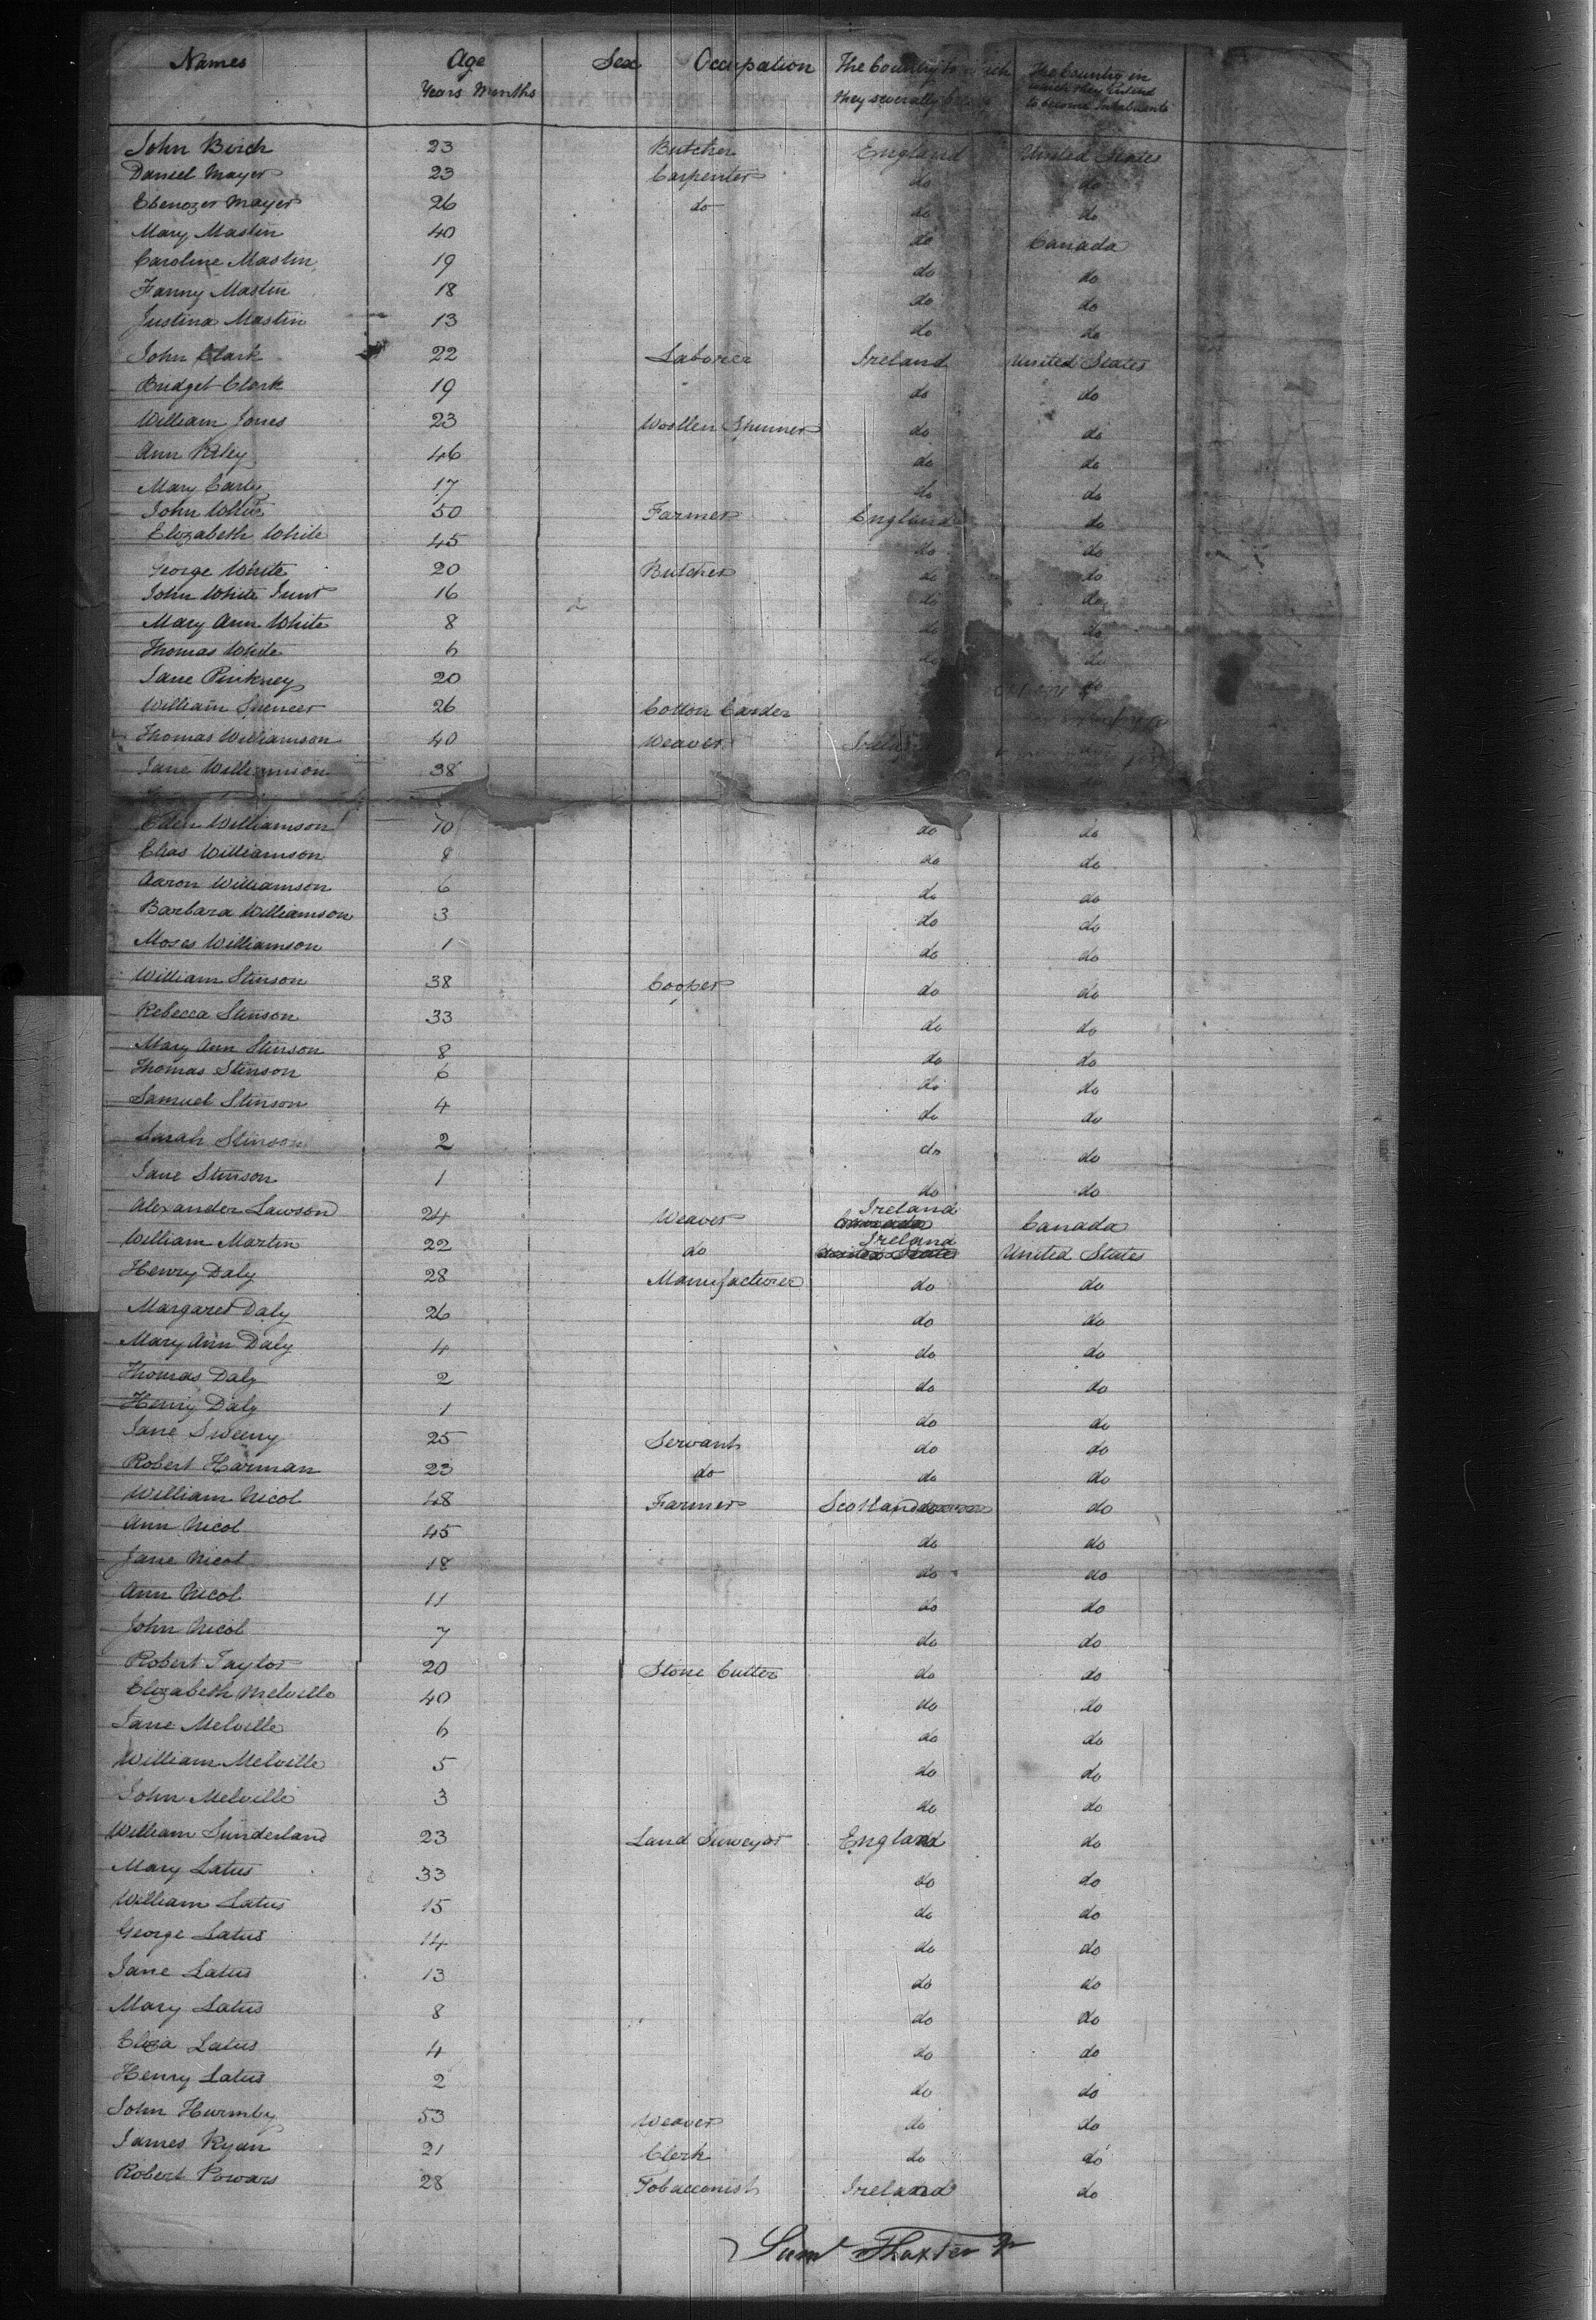 Names Age Sex Occupation The Country to which The Country in
Years Months they severally which they intend
to become Inhabitants
John Birch 23 Butcher England United States
Daniel Mayer 23 Carpenter do do
Ebenezer Mayer 26 do do do
Mary Mastin 40 do Canada
Caroline Mastin 19 do do
Fanny Mastin 18 do do
Justina Mastin 13 do do
John Clark 22 Laborer Ireland United States
Bridget Clark 19 do do
William Jones 23 Woollen Spinner do do
Ann Riley 46 do do
Mary Carty 17 do do
John White 50 Farmer England do
Elizabeth White 45 do do
George White 20 Butcher do do
John White Junr 16 do do
Mary Ann White 8 do do
Thomas White 6 do do
Jane Pinkney 20 do
William Spencer 26 Cotton Carder
Thomas Williamson 40 Weaver Ireland
Jane Williamson 38
Williamson 10 do do
Elias Williamson 8 do do
Aaron Williamson 6 do do
Barbara Williamson 3 do do
Moses Williamson 1 do do
William Stinson 38 Cooper do do
Rebecca Stinson 33 do do
Mary Ann Stinson 8 do do
Thomas Stinson 6 do do
Samuel Stinson 4 do do
Sarah Stinson 2 do do
Jane Stinson 1 do do
Alexander Lawson 24 Weaver Ireland Canada
William Martin 22 do Ireland United States
Henry Daly 28 Manufacturer do do
Margaret Daly 26 do do
Mary Ann Daly 4 do do
Thomas Daly 2 do do
Henry Daly 1 do do
Jane Sweeny 25 Servant do do
Robert Harman 23 do do do
William Nicol 48 Farmer Scotland do
Ann Nicol 45 do do
Jane Nicol 18 do do
Ann Nicol 11 do do
John Nicol 7 do do
Robert Taylor 20 Stone Cutter do do
Elizabeth Melville 40 do do
Jane Melville 6 do do
William Melville 5 do do
John Melville 3 do do
William Sunderland 23 Land Surveyor England do
Mary Latus 33 do do
William Latus 15 do do
George Latus 14 do do
Jane Latus 13 do do
Mary Latus 8 do do
Eliza Latus 4 do do
Henry Latus 2 do do
John Hurmby 53 Weaver do do
James Ryan 21 Clerk do do
Robert Powars 28 Tobacconist Ireland do
Saml Thaxter Jr